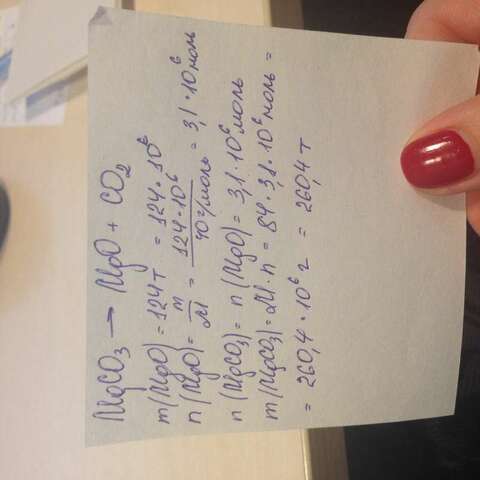 MgCO₃ → MgO + CO₂
m(MgO) = 124т = 124·10⁶
n(MgO) = m/M = 124·10⁶/40 г/моль = 3,1·10⁶ моль
n(MgCO₃) = n(MgO) = 3,1·10⁶ моль
m(MgCO₃) = M·n = 84·3,1·10⁶ моль =
= 260,4·10⁶ г = 260,4 т